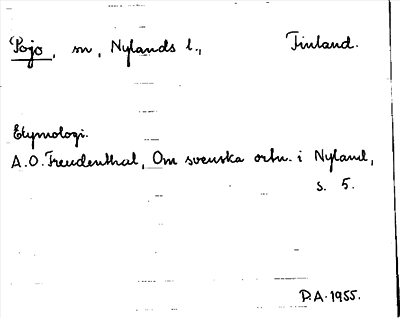 Pojo, sn, Nylands l., Finland.
Etymologi.
A.O. Freudenthal, Om svenska ortn. i Nyland,
s. 5.
P.A. 1955.